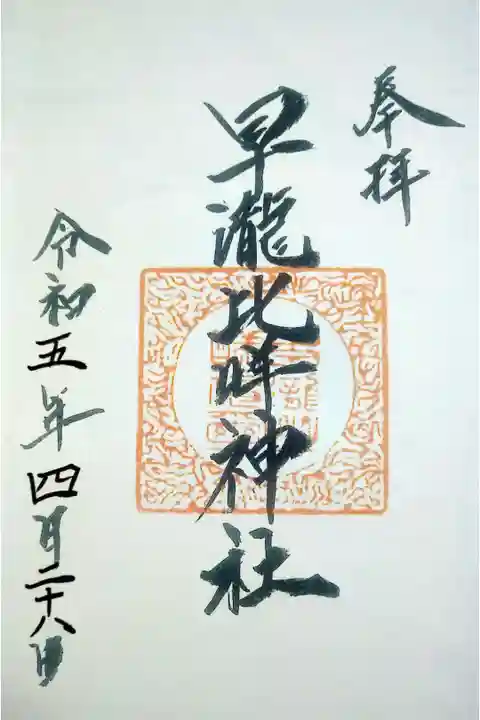 奉拝
早瀧比咩神社
令和五年四月二十八日